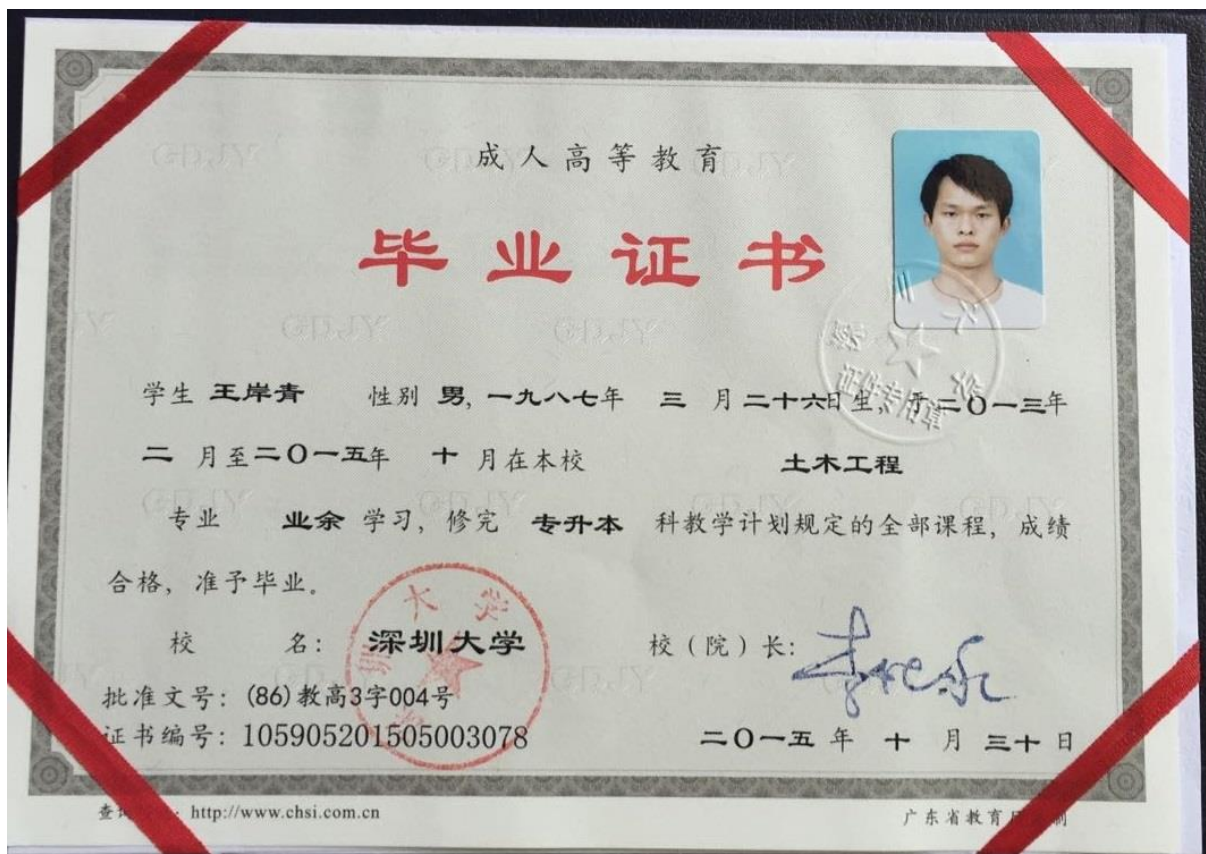 成人高等教育
毕业证书
学生 王岸青 性别 男, 一九八七年 三 月 二十六日生, 于二〇一三年
二 月至二〇一五年 十 月在本校 土木工程
专业 业余 学习, 修完 专升本 科教学计划规定的全部课程, 成绩
合格, 准予毕业。
校 名: 深圳大学 校(院)长:
批准文号: (86)教高3字004号
证书编号: 105905201505003078
二〇一五 年 十 月 三十 日
http://www.chsi.com.cn 广东省教育
证件专用章
GDJY